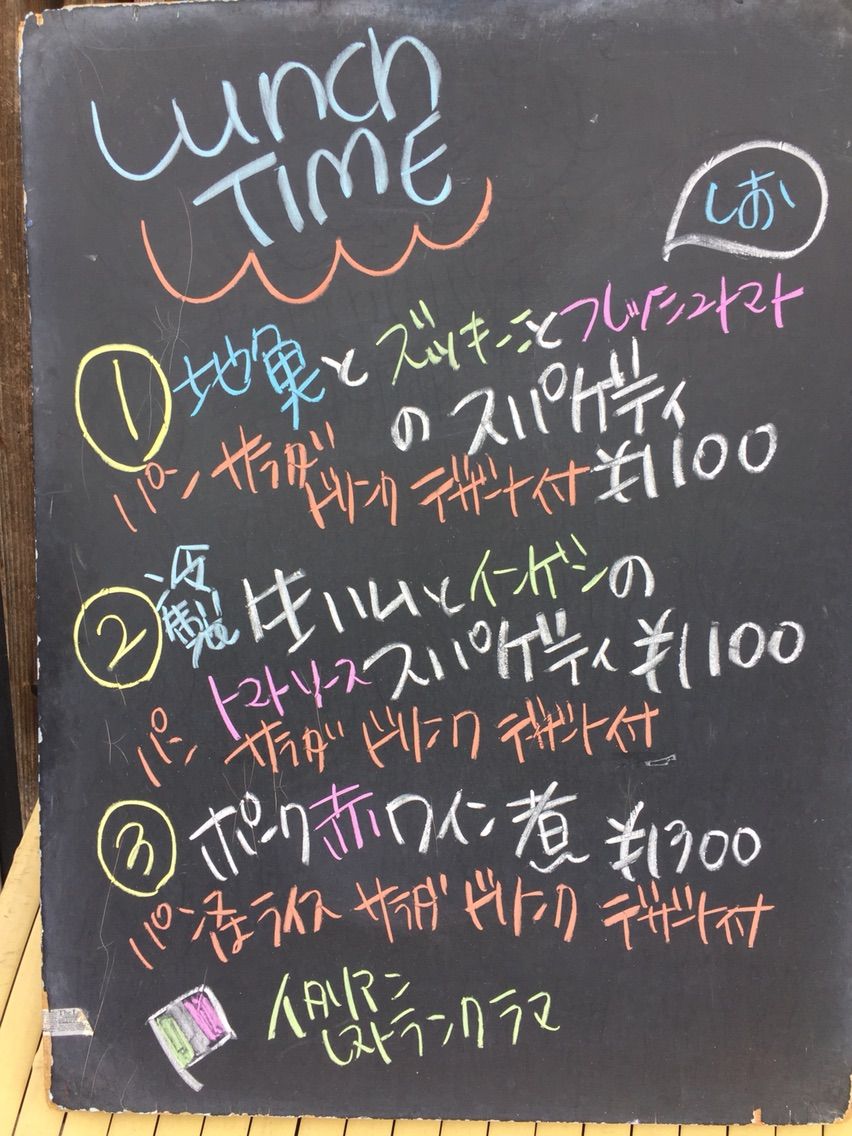 Lunch
TIME
しお
① 地魚とズッキーニとフレッシュトマト
のスパゲティ
パン サラダ ドリンク デザート付 ¥1100
② 自家製 生ハムとインゲンの
トマトソーススパゲティ ¥1100
パン サラダ ドリンク デザート付
③ ポーク赤ワイン煮 ¥1300
パン又はライス サラダ ドリンク デザート付
イタリアン
レストランクラマ